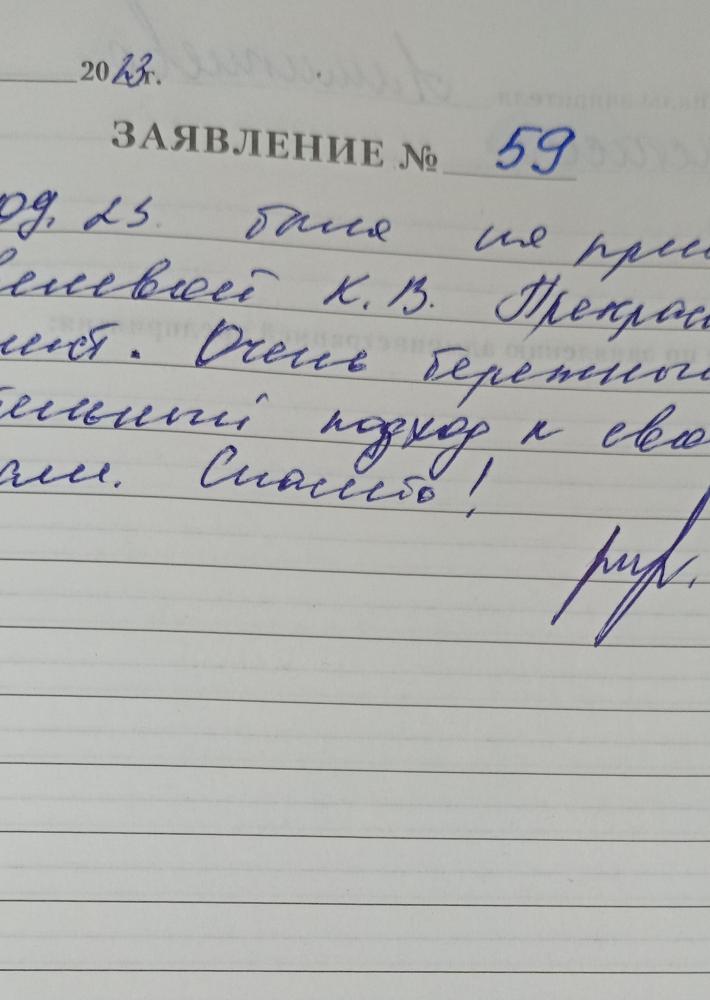 2023г.
ЗАЯВЛЕНИЕ № 59
23. была на при
К.В. Прекрас
ист. Очень бережный
тельный подход к сво
ам. Спасибо!